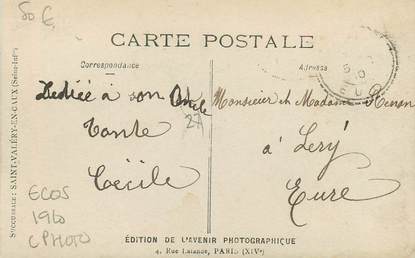 50 €
CARTE POSTALE
Correspondance
Adresse
Dédiée à son Oncle
Tante
Cécile
27
Monsieur et Madame
à Léry
Eure
ECOS
1910
CPHOTO
SUCCURSALE: SAINT-VALÉRY-EN-CAUX (Seine-Infre)
ÉDITION DE L'AVENIR PHOTOGRAPHIQUE
4, Rue Lalande, PARIS (XIVe)